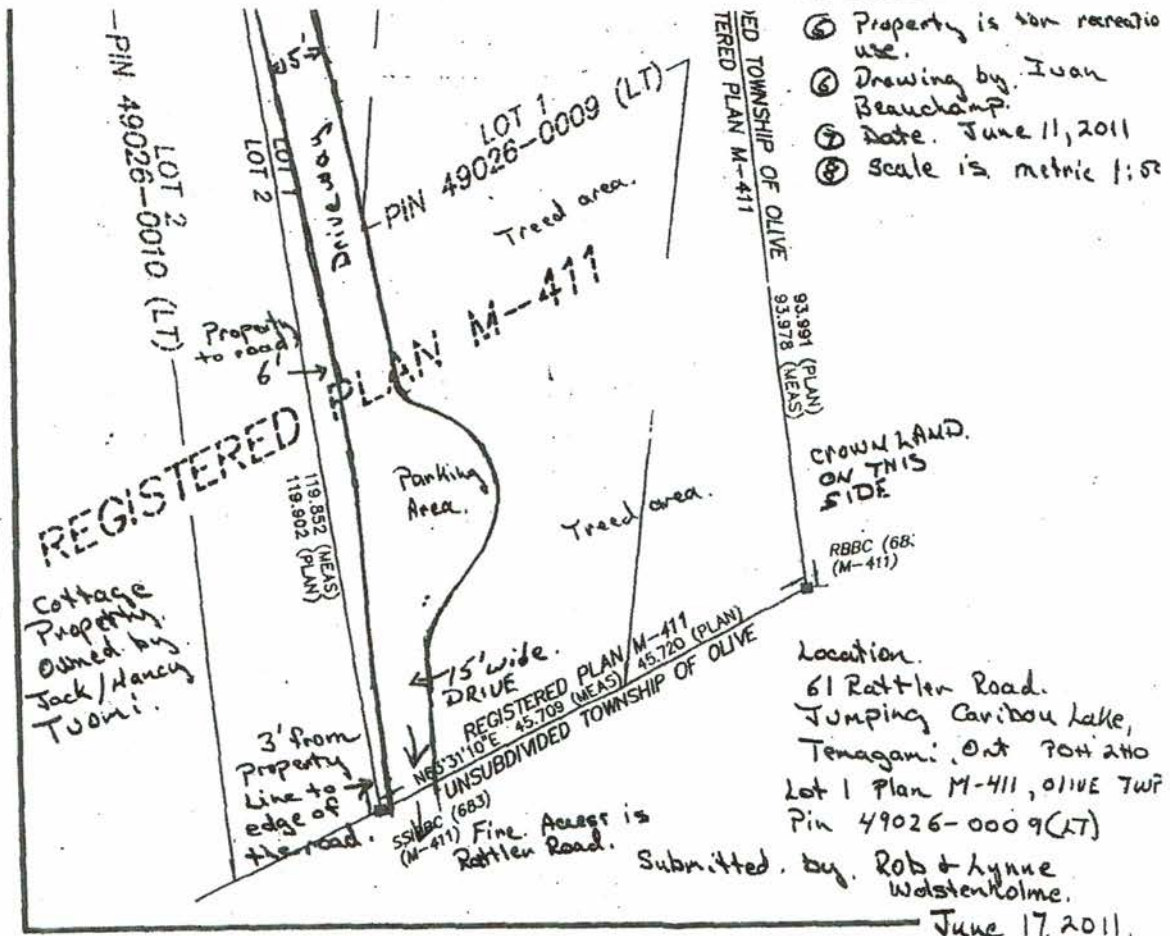 ⑤ Property is for recreatio
use.
⑥ Drawing by Ivan
Beauchamp.
⑦ Date. June 11, 2011
⑧ Scale is metric 1:50
PIN 49026-0010 (LT)
LOT 2
LOT 1
LOT 2
Driveway
LOT 1
PIN 49026-0009 (LT)
Treed area.
ED TOWNSHIP OF OLIVE
TERED PLAN M-411
93.991 (PLAN)
93.978 (MEAS)
Property
to road
6'
REGISTERED PLAN M-411
119.852 (MEAS)
119.902 (PLAN)
Parking
Area.
Treed area.
CROWN LAND.
ON THIS
SIDE
RBBC (68
(M-411)
Cottage
Property.
Owned by
Jack/Nancy
Tuomi.
15' wide.
DRIVE
REGISTERED PLAN M-411
N63°31'10"E 45.709 (MEAS) 45.720 (PLAN)
UNSUBDIVIDED TOWNSHIP OF OLIVE
3' from
Property
Line to
edge of
the road.
(683)
(M-411)
Fire Access is
Rattler Road.
Location.
61 Rattler Road.
Jumping Caribou Lake,
Temagami, Ont P0H 2H0
Lot 1 Plan M-411, OLIVE TWP
Pin 49026-0009(LT)
Submitted by. Rob & Lynne
Wolstenholme.
June 17, 2011.